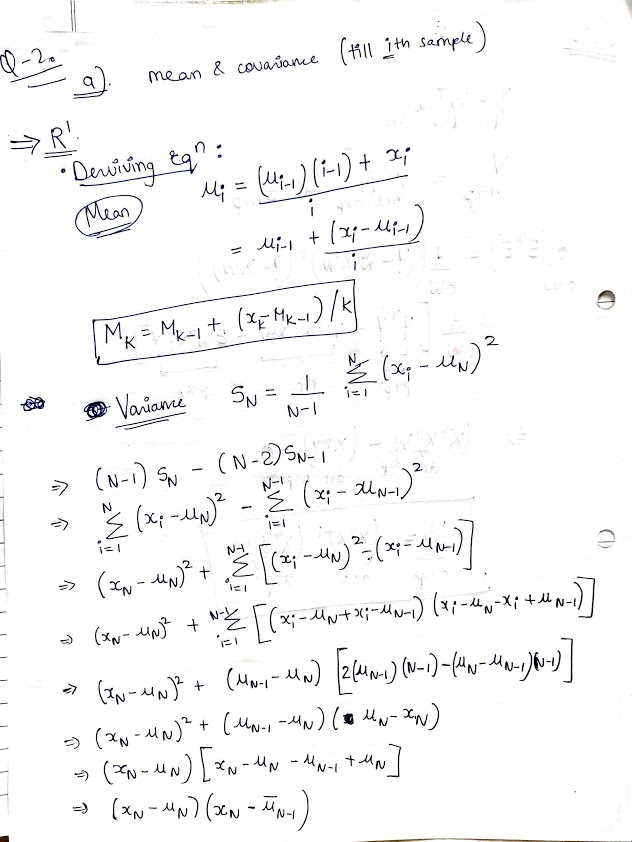 Q-2.
a). mean & covariance (till ith sample)
⇒ R'
• Deriving Eqⁿ :
Mean
μᵢ = (μᵢ₋₁)(i-1) + xᵢ / i
= μᵢ₋₁ + (xᵢ - μᵢ₋₁) / i
M_K = M_{K-1} + (x_K - M_{K-1}) / K
Variance S_N = 1/(N-1) Σ_{i=1}^{N} (xᵢ - μ_N)²
⇒ (N-1) S_N - (N-2) S_{N-1}
⇒ Σ_{i=1}^{N} (xᵢ - μ_N)² - Σ_{i=1}^{N-1} (xᵢ - μ_{N-1})²
⇒ (x_N - μ_N)² + Σ_{i=1}^{N-1} [(xᵢ - μ_N)² - (xᵢ - μ_{N-1})]
⇒ (x_N - μ_N)² + Σ_{i=1}^{N-1} [(xᵢ - μ_N + xᵢ - μ_{N-1}) (xᵢ - μ_N - xᵢ + μ_{N-1})]
⇒ (x_N - μ_N)² + (μ_{N-1} - μ_N) [2(μ_{N-1})(N-1) - (μ_N - μ_{N-1})(N-1)]
⇒ (x_N - μ_N)² + (μ_{N-1} - μ_N) (μ_N - x_N)
⇒ (x_N - μ_N) [x_N - μ_N - μ_{N-1} + μ_N]
⇒ (x_N - μ_N) (x_N - μ̅_{N-1})